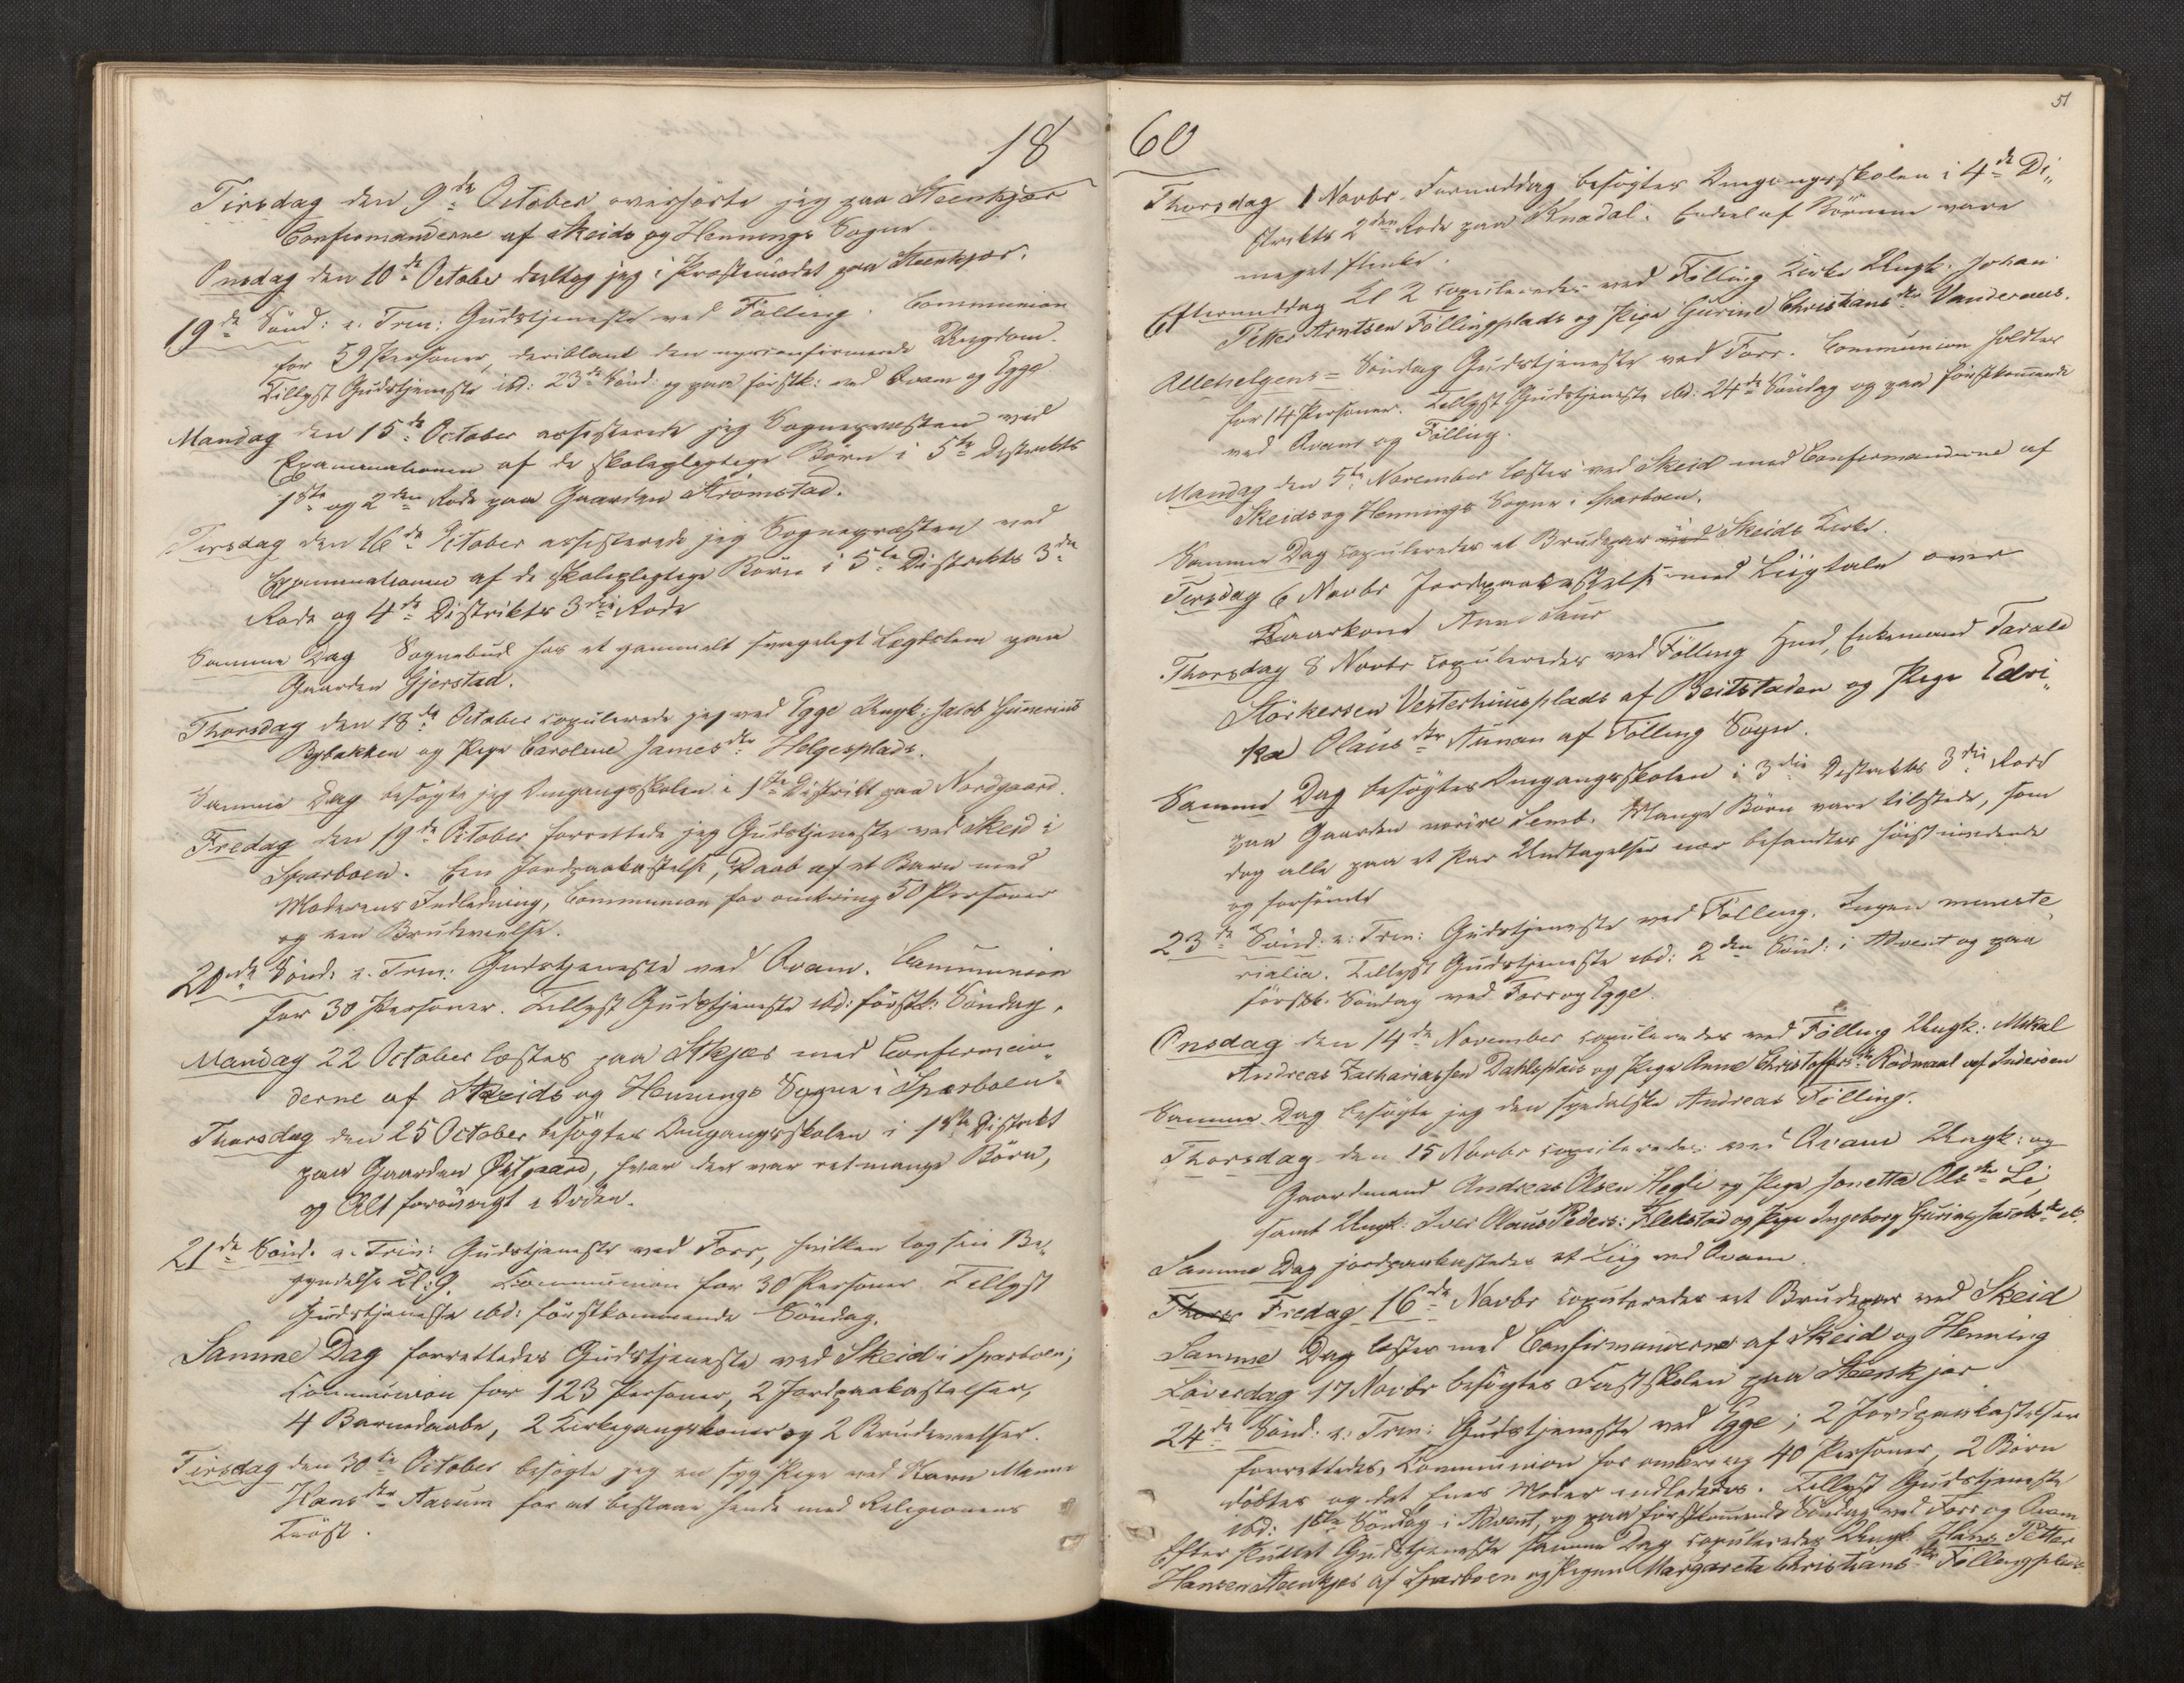 18
Tirsdag den 9de October overhørte jeg paa Steenkjær
Confirmanderne af Skeids og Hennings Sogne.
Onsdag den 10de October deeltog jeg i Præstemødet paa Steenkjær.
19de Sønd: e. Trin: Gudstjeneste ved Følling. Communion
for 59 Personer, deriblandt den nyconfirmerede Ungdom.
Tillyst Gudstjeneste ibd: 23de Sønd: og paa førstk: ved Qvam og Egge
Mandag den 15de October assisterede jeg Sognepræsten ved
Examinationen af de skolepligtige Børn i 5te Distrikts
1ste og 2den Rode paa Gaarden Strømstad.
Tirsdag den 16de October assisterede jeg Sognepræsten ved
Examinationen af de skolepligtige Børn i 5te Distrikts 3die
Rode og 4de Distrikts 3die Rode
Samme Dag Sognebud hos et gammelt svageligt Lægdslem paa
Gaarden Gjerstad.
Thorsdag den 18de October copulerede jeg ved Egge Ungk: Jacob Gunerius
Bybakken og Pige Caroline Jamesdtr Helgesplads.
Samme Dag besøgte jeg Omgangsskolen i 1ste Distrikt paa Nordgaard.
Fredag den 19de October forrettede jeg Gudstjeneste ved Skeid i
Sparboen. En Jordpaakastelse, Daab af et Barn med
Moderens Indledning, Communion for omkring 50 Personer
og een Brudevielse.
20nde Sønd: e. Trin: Gudstjeneste ved Qvam. Communion
for 30 Personer. Tillyst Gudstjeneste ibd: førstk: Søndag.
Mandag 22 October læstes paa Stkjær med Confirman-
derne af Skeids og Hennings Sogne i Sparboen.
Thorsdag den 25 October besøgtes Omgangsskolen i 1ste Distrikt
paa Gaarden Østgaard, hvor der var ret mange Børn,
og Alt forøvrigt i Orden.
21de Sønd. e. Trin: Gudstjeneste ved Forr, hvilken tog sin Be-
gyndelse Kl: 9. Communion for 30 Personer. Tillyst
Gudstjeneste ibd: førstkommende Søndag.
Samme Dag forrettedes Gudstjeneste ved Skeid i Sparboen;
Communion for 123 Personer, 2 Jordpaakastelser,
4 Barnedaabe, 2 Kirkegangskoner og 2 Brudevielser.
Tirsdag den 30te October besøgte jeg en syg Pige ved Navn
Hansdtr Aasum for at bestaae hende med Religionens
Trøst.
51
60
Thorsdag 1 Novbr. Formiddag besøgtes Omgangsskolen i 4de Di-
strikts 2den Rode paa Knadal. Endeel af Børnene vare
meget flinke.
Eftermiddag Kl 2 copuleredes ved Følling Kirke Ungk: Johan
Petter Arntsen Føllingplads og Pige Gurine Christiansdtr Vanderaas.
Allehelgens= Søndag Gudstjeneste ved Forr. Communion holdtes
for 14 Personer. Tillyst Gudstjeneste ibd: 24de Søndag og paa førstkommende
ved Qvam og Følling.
Mandag den 5te November læstes ved Skeid med Confirmanderne af
Skeids og Hennings Sogne i Sparboen.
Samme Dag copuleredes et Brudepar i Skeids Kirke.
Tirsdag 6 Novbr Jordpaakastelse med Liigtale over
Kaarkone Anne
Thorsdag 8 Novbr copuleredes ved Følling Huusm. Enkemand Tarald
Størkersen Vesterhuusplads af Beitstaden og Pige Edvi-
ka Olausdtr Aunan af Følling Sogn.
Samme Dag besøgtes Omgangsskolen i 3die Distrikts 3die Rode
paa Gaarden nordre Lemb. Mange Børn vare tilstede, som
dog alle paa et Par Undtagelser nær befandtes høist
og forsømte
23de Sønd: e: Trin: Gudstjeneste ved Følling. Ingen ministe-
rialia. Tillyst Gudstjeneste ibd: 2den Sønd: i Advent og paa
førstk. Søndag ved Forr og Egge.
Onsdag den 14de November copuleredes ved Følling Ungk: Mikal
Andreas Zachariassen Dahlsplads og Pige Anne Christoffersdtr Rødmaal af Inderøen
Samme Dag besøgte jeg den spedalske Andreas Følling.
Thorsdag den 15 Novbr copuleredes ved Qvam Ungk: og
Gaardmand Andreas Olsen Hegli og Pige Jonetta Olsdtr Li,
samt Ungk: Iver Olaus Peders: Flekstad og Pige Ingeborg Gurine Jacobsdtr
Samme Dag jordpaakastedes et Liig ved Qvam.
Fredag 16de Novbr copuleredes et Brudepar ved Skeid
Samme Dag læstes med Confirmanderne af Skeid og Henning
Løverdag 17 Novbr besøgtes Fastskolen paa Steenkjær
24de Sønd: e: Trin: Gudstjeneste ved Egge; 2 Jordpaakastelser
forrettedes, Communion for omkring 40 Personer, 2 Børn
døbtes og det Enes Moder indlededes. Tillyst Gudstjeneste
ibd: 1ste Søndag i Advent, og paa førstkommende Søndag ved Forr og Qvam
Efter sluttet Gudstjeneste samme Dag copuleredes Ungk. Hans Petter
Hansen Steenkjær af Sparboen og Pigen Margareta Christiansdtr Føllingplads